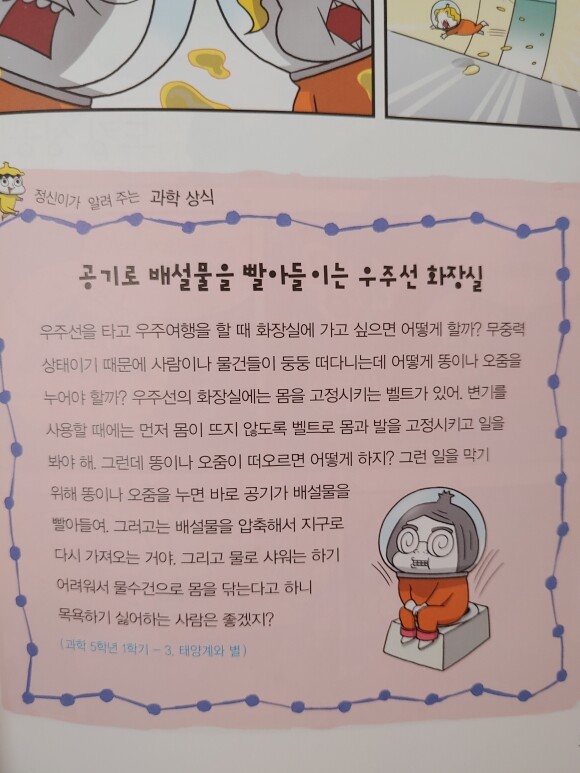 정신이가 알려 주는 과학 상식
공기로 배설물을 빨아들이는 우주선 화장실
우주선을 타고 우주여행을 할 때 화장실에 가고 싶으면 어떻게 할까? 무중력
상태이기 때문에 사람이나 물건들이 둥둥 떠다니는데 어떻게 똥이나 오줌을
누어야 할까? 우주선의 화장실에는 몸을 고정시키는 벨트가 있어. 변기를
사용할 때에는 먼저 몸이 뜨지 않도록 벨트로 몸과 발을 고정시키고 일을
봐야 해. 그런데 똥이나 오줌이 떠오르면 어떻게 하지? 그런 일을 막기
위해 똥이나 오줌을 누면 바로 공기가 배설물을
빨아들여. 그러고는 배설물을 압축해서 지구로
다시 가져오는 거야. 그리고 물로 샤워는 하기
어려워서 물수건으로 몸을 닦는다고 하니
목욕하기 싫어하는 사람은 좋겠지?
(과학 5학년 1학기 - 3. 태양계와 별)